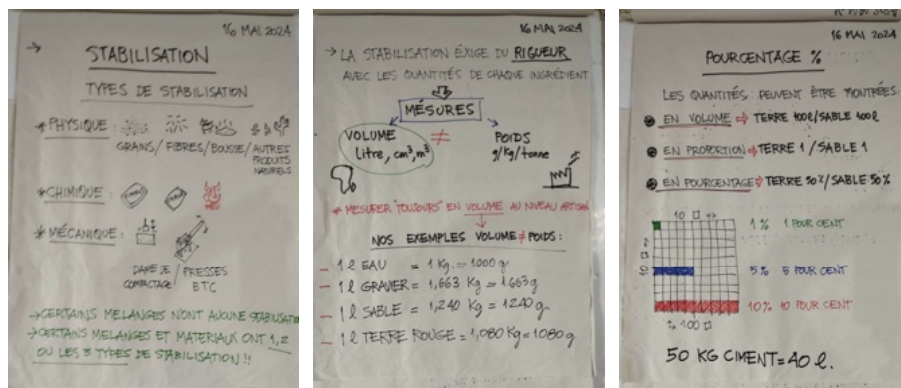 16 MAI 2024
→ STABILISATION
TYPES DE STABILISATION
* PHYSIQUE:
GRAINS/ FIBRES/ BOUSE/ AUTRES
PRODUITS
NATURELS
* CHIMIQUE:
* MÉCANIQUE:
DAME JE / PRESSES
COMPACTAGE BTC
→ CERTAINS MELANGES N'ONT AUCUNE STABILISATION
→ CERTAINS MELANGES ET MATERIAUX ONT 1, 2
OU LES 3 TYPES DE STABILISATION !!
16 MAI 2024
→ LA STABILISATION EXIGE DU RIGUEUR
AVEC LES QUANTITÉS DE CHAQUE INGRÉDIENT
MÉSURES
VOLUME ≠ POIDS
Litre, cm³, m³ g/Kg/tonne
* MESURER "TOUJOURS" EN VOLUME AU NIVEAU ARTISAN
NOS EXEMPLES VOLUME ≠ POIDS:
– 1 l EAU = 1 Kg. = 1000 g
– 1 l GRAVIER = 1,663 Kg = 1.663 g
– 1 l SABLE = 1,240 Kg = 1240 g
– 1 l TERRE ROUGE = 1,080 Kg = 1080 g
16 MAI 2024
POURCENTAGE %
LES QUANTITÉS: PEUVENT ÊTRE MONTRÉES:
EN VOLUME ⇒ TERRE 100 l / SABLE 100 l
EN PROPORTION ⇒ TERRE 1 / SABLE 1
EN POURCENTAGE ⇒ TERRE 50% / SABLE 50%
10 □ ↔
1% 1 POUR CENT
10 □
5% 5 POUR CENT
10% 10 POUR CENT
100 □
50 KG CIMENT = 40 l.